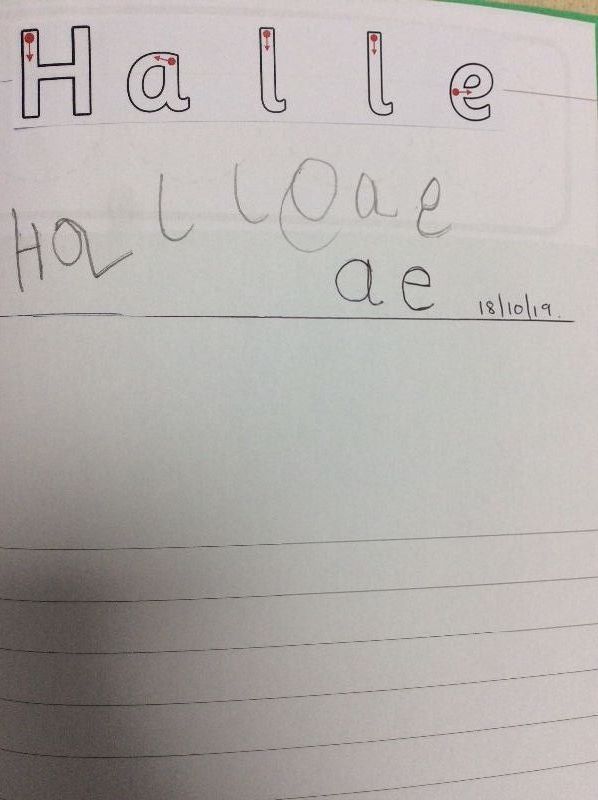 Halle
Halle a e
a e 18/10/19.